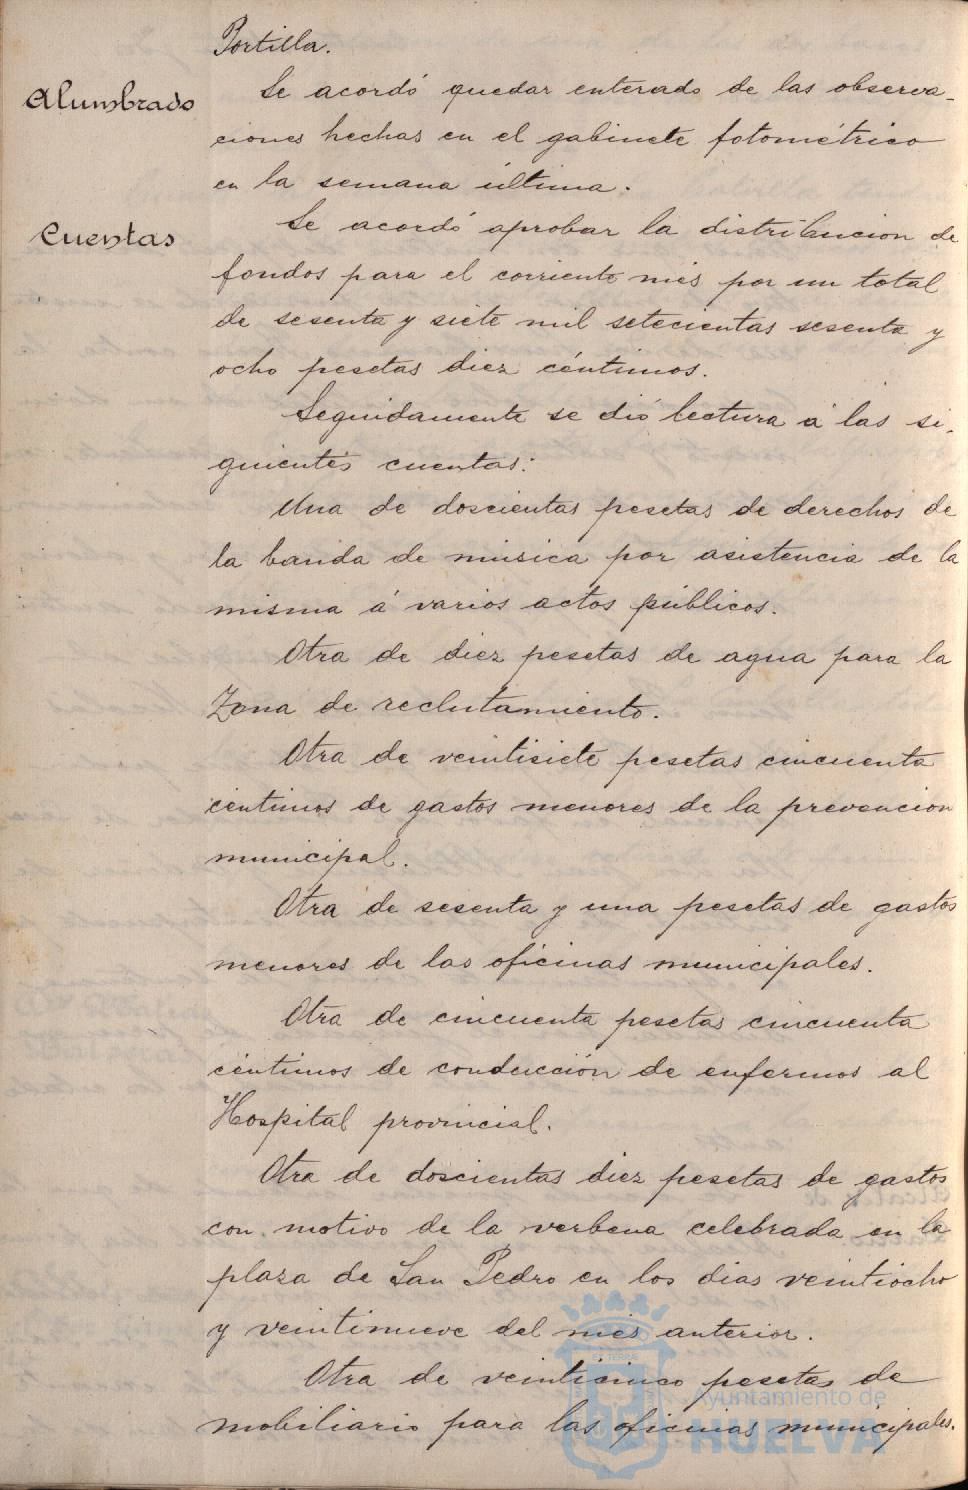 Portilla.
Alumbrado
Se acordó quedar enterado de las observa-
ciones hechas en el gabinete fotométrico
en la semana última.
Cuentas
Se acordó aprobar la distribucion de
fondos para el corriente mes por un total
de sesenta y siete mil setecientas sesenta y
ocho pesetas diez céntimos.
Seguidamente se dió lectura á las si-
guientes cuentas:
Una de doscientas pesetas de derechos de
la banda de música por asistencia de la
misma á varios actos públicos.
Otra de diez pesetas de agua para la
Zona de reclutamiento.
Otra de veintisiete pesetas cincuenta
céntimos de gastos menores de la prevencion
municipal.
Otra de sesenta y una pesetas de gastos
menores de las oficinas municipales.
Otra de cincuenta pesetas cincuenta
céntimos de conducción de enfermos al
Hospital provincial.
Otra de doscientas diez pesetas de gastos
con motivo de la verbena celebrada en la
plaza de San Pedro en los dias veintiocho
y veintinueve del mes anterior.
Otra de veinticinco pesetas de
mobiliario para las oficinas municipales.
Ayuntamiento de
HUELVA